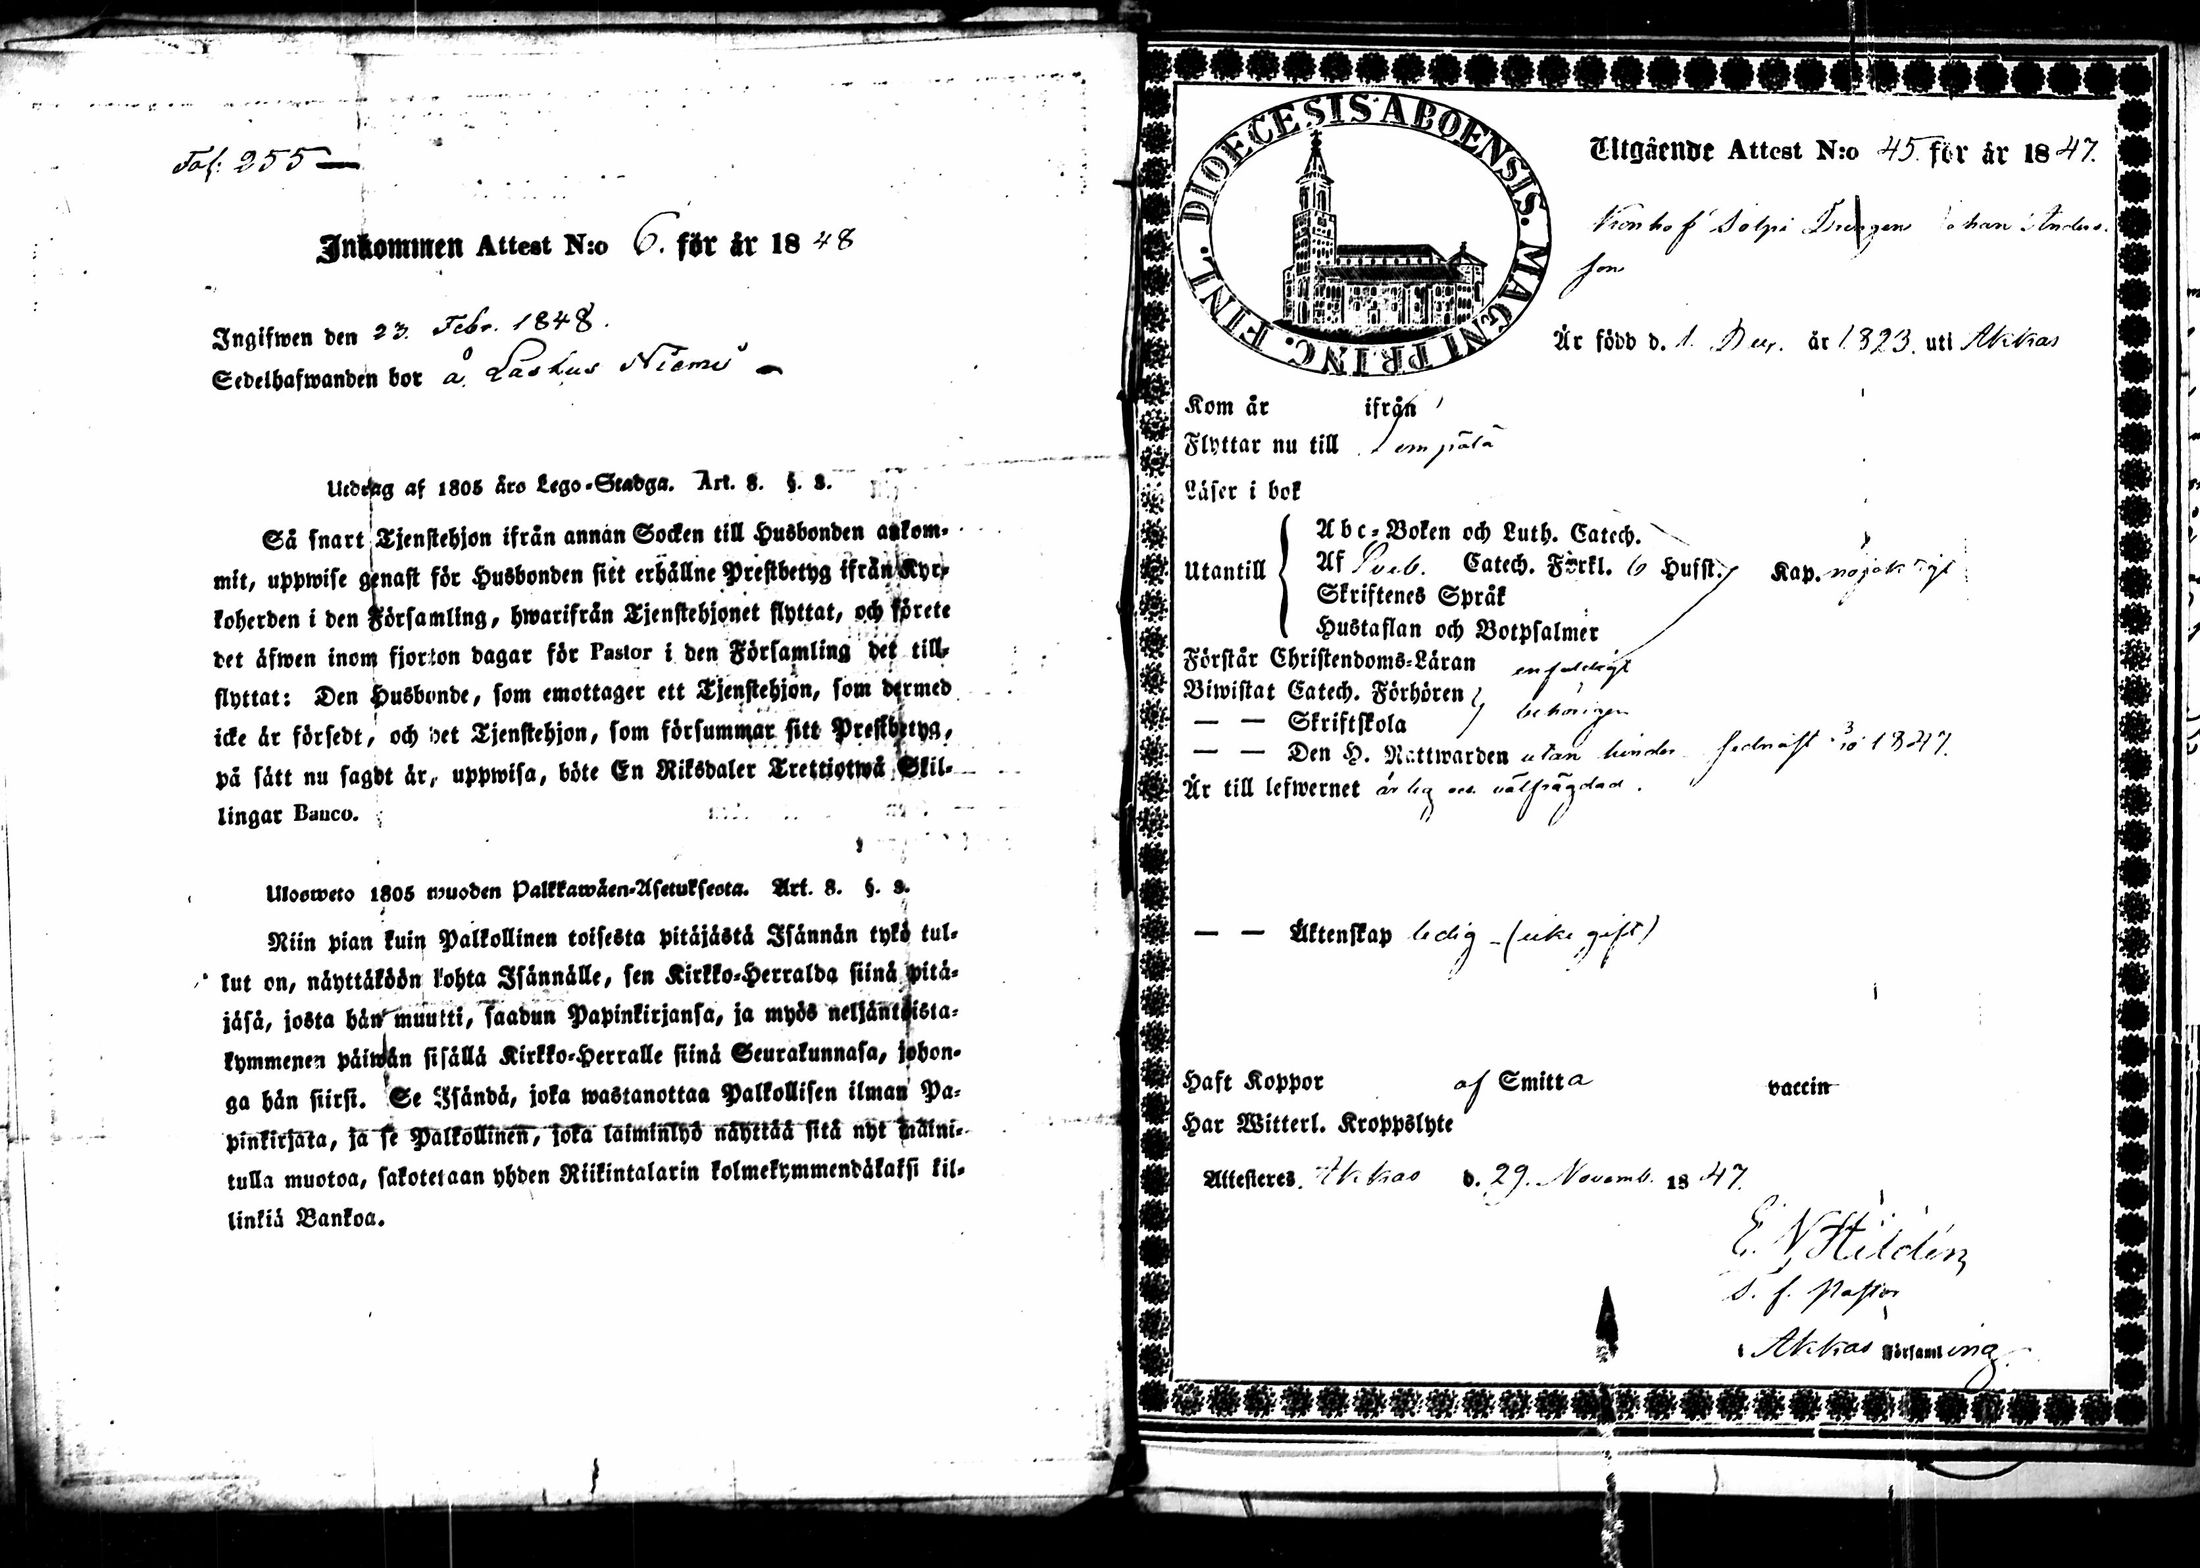 Fol: 255
Inkommen Attest N:o 6. för år 1848
Ingifwen den 23. Febr. 1848.
Sedelhafwanden bor å Laskus Niemi
Utdrag af 1805 års Lego-Stadga. Art. 8. §. 3.
Så snart Tjenstehjon ifrån annan Socken till Husbonden ankom-
mit, uppwise genast för Husbonden sitt erhållne Prestbetyg ifrån Kyr-
koherden i den Församling, hwarifrån Tjenstehjonet flyttat, och förete
det äfwen inom fjorton dagar för Pastor i den Församling det till-
flyttat: Den Husbonde, som emottager ett Tjenstehjon, som dermed
icke är försedt, och det Tjenstehjon, som försummar sitt Prestbetyg,
på sätt nu sagdt är, uppwisa, böte En Riksdaler Trettiotwå Skil-
lingar Banco.
Ulosweto 1805 wuoden Palkkawäen-Asetuksesta. Art. 8. §. 3.
Niin pian kuin Palkollinen toisesta pitäjästä Isännän tykö tul-
lut on, näyttäköön kohta Isännälle, sen Kirkko-Herralda siinä pitä-
jäsä, josta hän muutti, saadun Papinkirjansa, ja myös neljäntoista-
kymmenen päiwän sisällä Kirkko-Herralle siinä Seurakunnasa, johon-
ga hän siirsi. Se Isändä, joka wastanottaa Palkollisen ilman Pa-
pinkirjata, ja se Palkollinen, joka laiminlyö näyttää sitä nyt maini-
tulla muotoa, sakotetaan yhden Riikintalarin kolmekymmendäkaksi kil-
linkiä Bankoa.
DIOECESIS ABOENSIS. MAGNI PRINC. FINL.
Utgående Attest N:o 45. för år 1847.
Drengen Johan Anders-
son
Är född d. 1. Dec. år 1823. uti Akkas
Kom år ifrån
Flyttar nu till Lempälä
Läser i bok
Utantill
Abc-Boken och Luth. Catech.
Af Sveb. Catech. Förkl. 6 Hufst. Kap. nöjaktigt
Skriftenes Språk
Hustaflan och Botpsalmer
Förstår Christendoms-Läran enfaldigt
Biwistat Catech. Förhören
— — Skriftskola behörigen
— — Den H. Nattwarden utan hinder sednast 3/10 1847.
Är till lefwernet ärlig och välfrägdad.
— — Äktenskap ledig - (icke gift)
Haft Koppor af Smitta vaccin
Har Witterl. Kroppslyte
Attesteres Akkas d. 29. Novemb. 1847.
E. N. Hildén
v. f. Pastor
i Akkas Församling